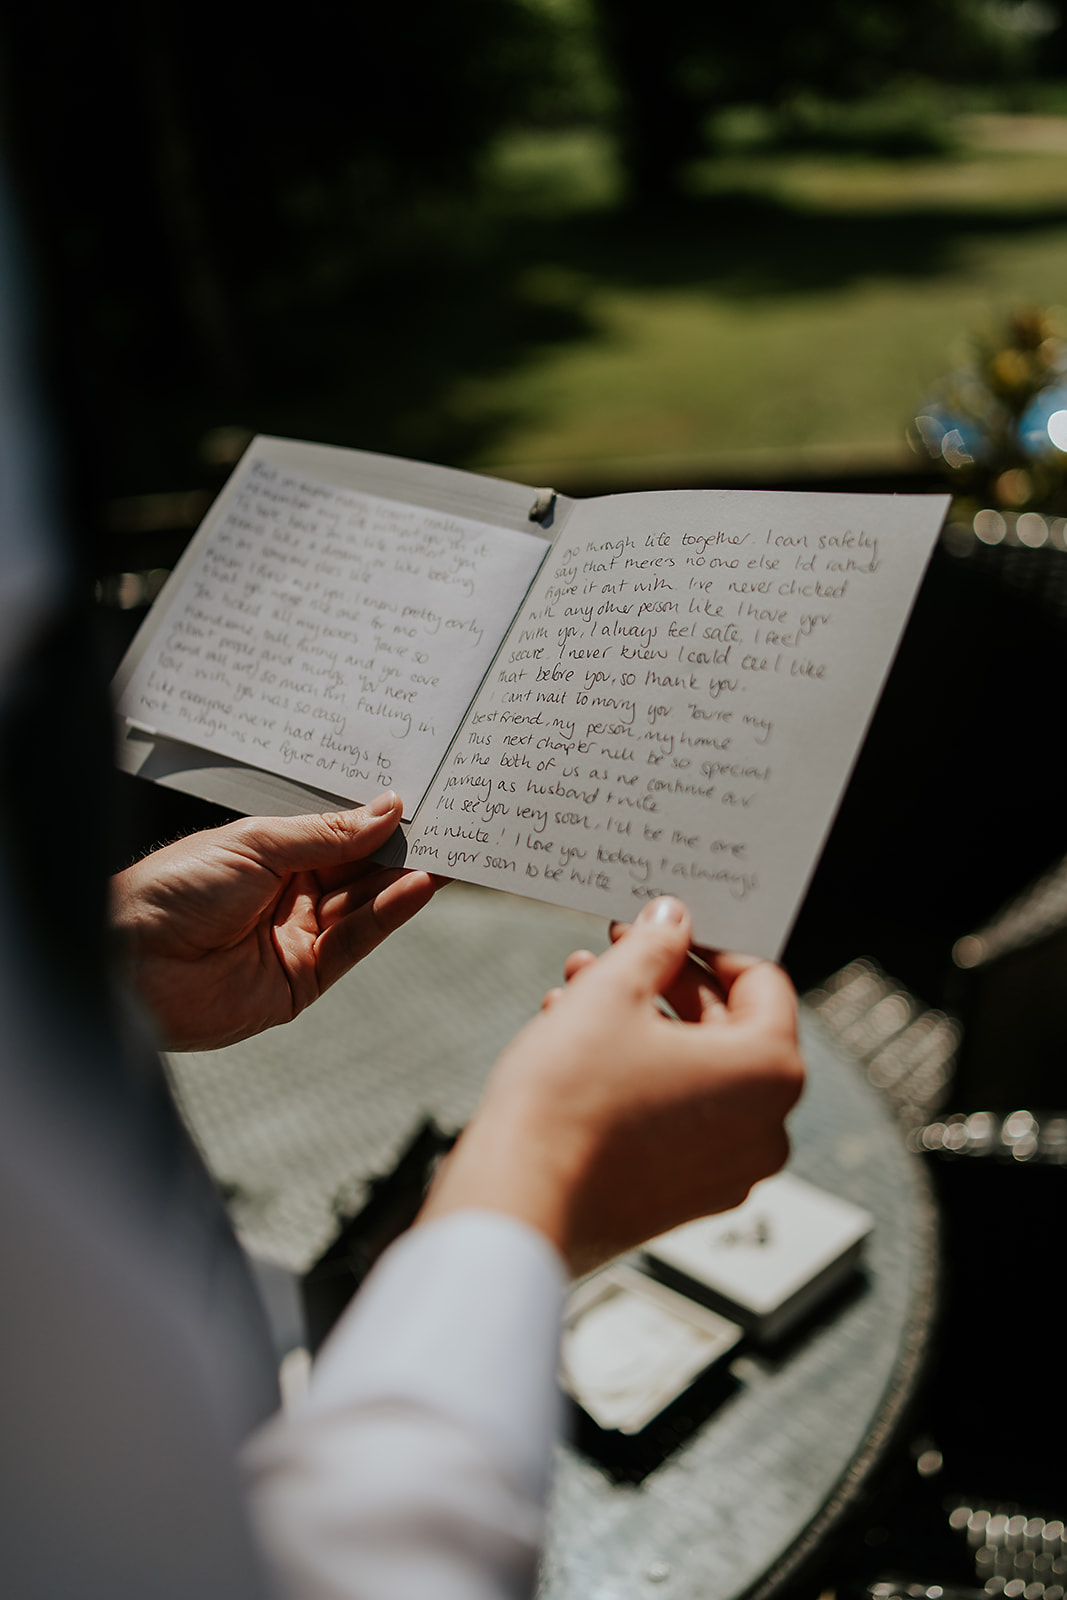 But on
remember my life without you in it.
To look back on a life without you
feels like a dream, or like looking
in on someone else's life
When I first met you, I knew pretty early
that you were the one for me
You ticked all my boxes. You're so
handsome, tall, funny and you care
about people and things. You were
(and still are) so much fun. Falling in
love with you was so easy
Like everyone, we've had things to
next through as we figure out how to
go through life together. I can safely
say that there's no one else I'd rather
figure it out with. I've never clicked
with any other person like I have you
With you, I always feel safe, I feel
secure. I never knew I could feel like
that before you, so thank you.
I can't wait to marry you. You're my
best friend, my person, my home
This next chapter will be so special
for the both of us as we continue our
journey as husband + wife
I'll see you very soon, I'll be the one
in white! I love you today + always
from your soon to be wife